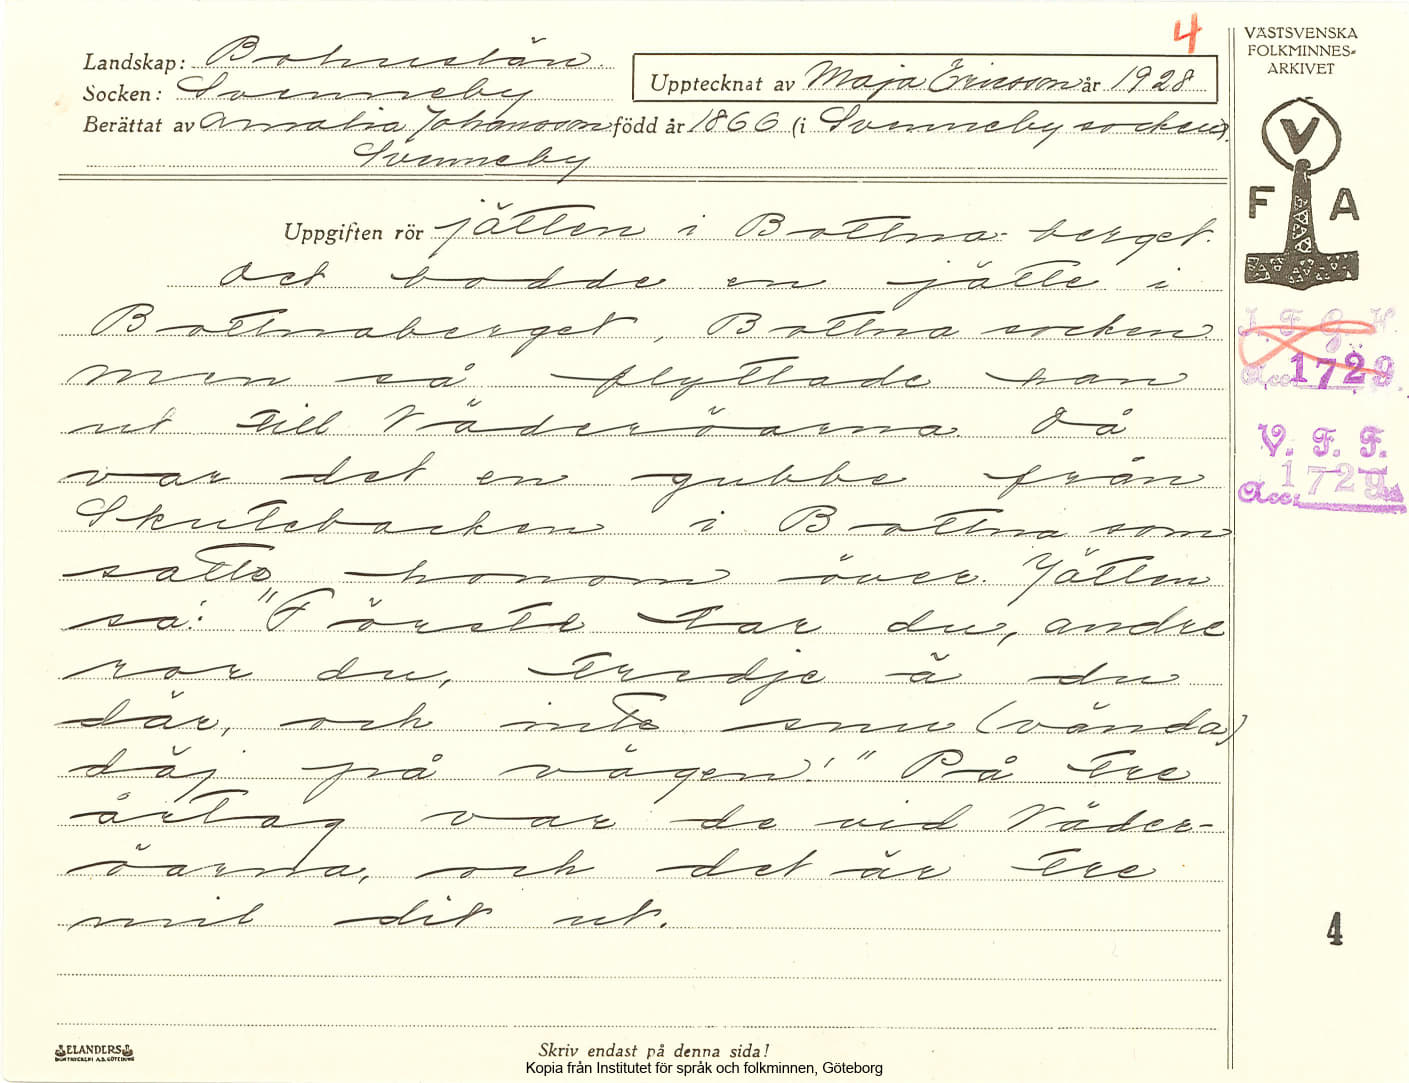 4
Landskap: Bohuslän
Socken: Svenneby
Upptecknat av Maja Ericsson år 1928
Berättat av Amalia Johansson född år 1866 (i Svenneby socken).
Svenneby
Uppgiften rör jätten i Bottna-berget.
Det bodde en jätte i
Bottnaberget, Bottna socken.
Men så flyttade han
ut till Väderöarna. Då
var det en gubbe från
Skutebacken i Bottna som
satte honom över. Jätten
sa: "Förste tar du, andre
ror du, tredje ä du
där, och inte snu (vända)
däj på vägen!" På tre
årtag var de vid Väder-
öarna, och det är tre
mil dit ut.
VÄSTSVENSKA
FOLKMINNES-
ARKIVET
V
F A
I. F. G. H.
Acc. 1729
V. F. F.
Acc. 1729
4
ELANDERS
BOKTRYCKERI A.B. GÖTEBORG
Skriv endast på denna sida!
Kopia från Institutet för språk och folkminnen, Göteborg